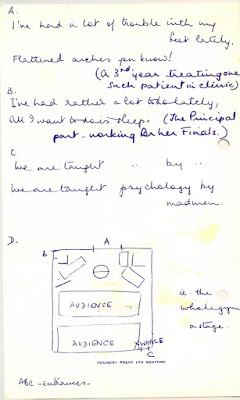 A.
I've had a lot of trouble with my
feet lately.
Flattened arches you know!
(A 3rd year treating one
such patient in clinic)
B.
I've had rather a lot to do lately,
All I want to do is sleep. (The Principal
part - working for her Finals.)
C.
We are taught " by "
We are taught psychology by
madmen.
D.
A
B
AUDIENCE
i.e. the
whole gym
a stage.
AUDIENCE
WHOLE
C
FOUNDRY PRESS LTD BEDFORD
ABC - entrances.